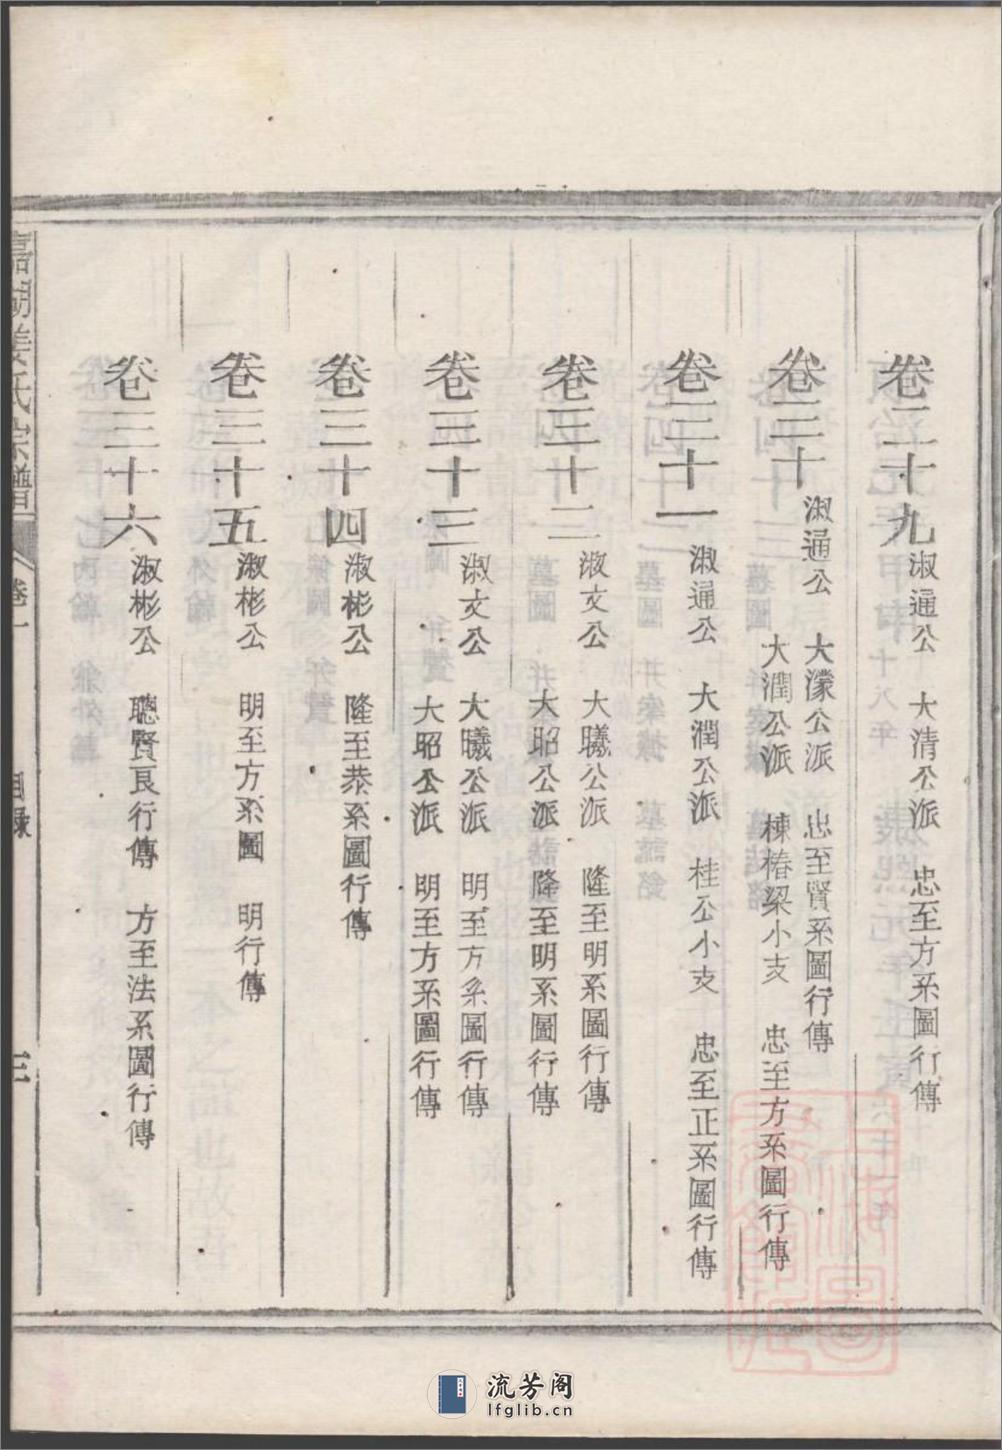 卷二十九 淑通公 大清公派 忠至方系圖行傳
卷三十 淑通公 大濛公派 忠至賢系圖行傳
大潤公派 棟椿梁小支 忠至方系圖行傳
卷三十一 淑通公 大潤公派 桂公小支 忠至正系圖行傳
卷三十二 淑文公 大曦公派 隆至明系圖行傳
大昭公派 隆至明系圖行傳
卷三十三 淑文公 大曦公派 明至方系圖行傳
大昭公派 明至方系圖行傳
卷三十四 淑彬公 隆至恭系圖行傳
卷三十五 淑彬公 明至方系圖 明行傳
卷三十六 淑彬公 聰賢良行傳 方至法系圖行傳
嘉湖姜氏宗譜 卷一 目錄 三
流芳阁
lfglib.cn